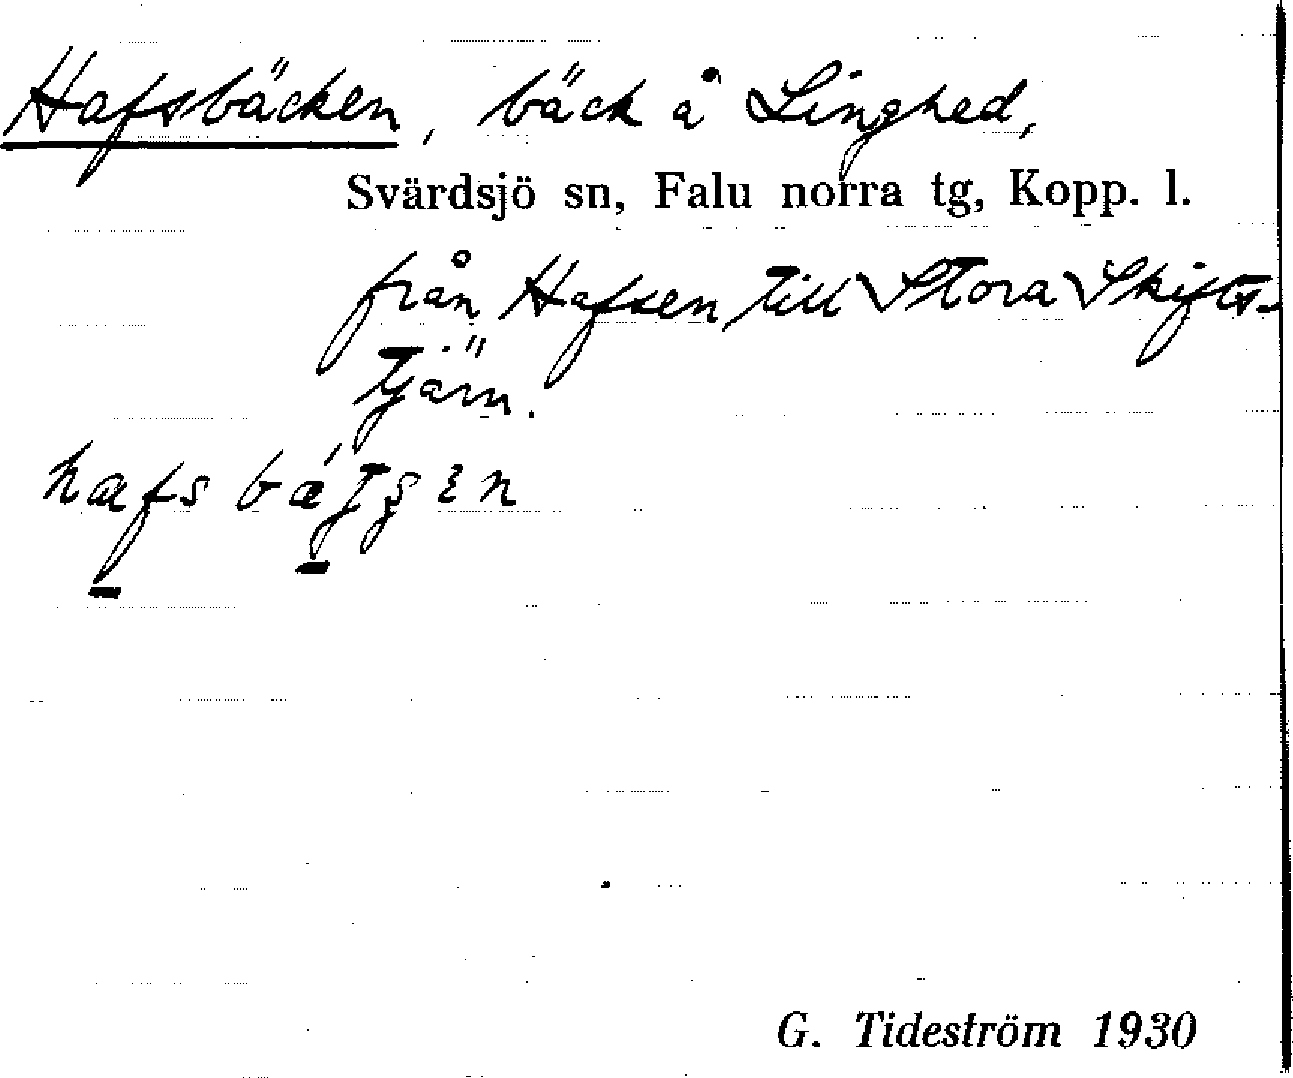 Hafsbäcken, bäck å Linghed,
Svärdsjö sn, Falu norra tg, Kopp. l.
från Hafsen till Stora Skifts-
tjärn.
G. Tideström 1930